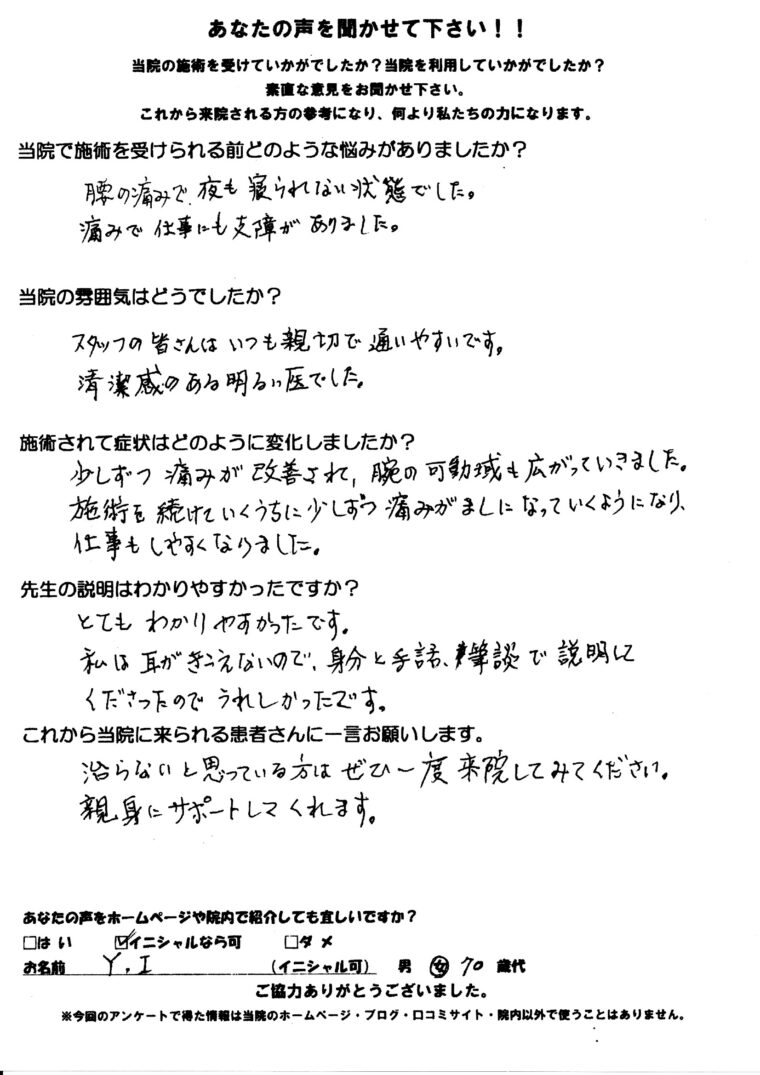 あなたの声を聞かせて下さい！！
当院の施術を受けていかがでしたか？当院を利用していかがでしたか？
素直な意見をお聞かせ下さい。
これから来院される方の参考になり、何より私たちの力になります。
当院で施術を受けられる前どのような悩みがありましたか？
腰の痛みで、夜も寝られない状態でした。
痛みで仕事にも支障がありました。
当院の雰囲気はどうでしたか？
スタッフの皆さんはいつも親切で通いやすいです。
清潔感のある明るい医でした。
施術されて症状はどのように変化しましたか？
少しずつ痛みが改善されて、腕の可動域も広がっていきました。
施術を続けていくうちに少しずつ痛みがましになっていくようになり、
仕事もしやすくなりました。
先生の説明はわかりやすかったですか？
とてもわかりやすかったです。
私は耳がきこえないので、身分と手話、筆談で説明して
くださったのでうれしかったです。
これから当院に来られる患者さんに一言お願いします。
治らないと思っている方はぜひ一度来院してみてください。
親身にサポートしてくれます。
あなたの声をホームページや院内で紹介しても宜しいですか？
□はい ☑イニシャルなら可 □ダメ
お名前 Y.I (イニシャル可) 男 女 70 歳代
ご協力ありがとうございました。
※今回のアンケートで得た情報は当院のホームページ・ブログ・口コミサイト・院内以外で使うことはありません。